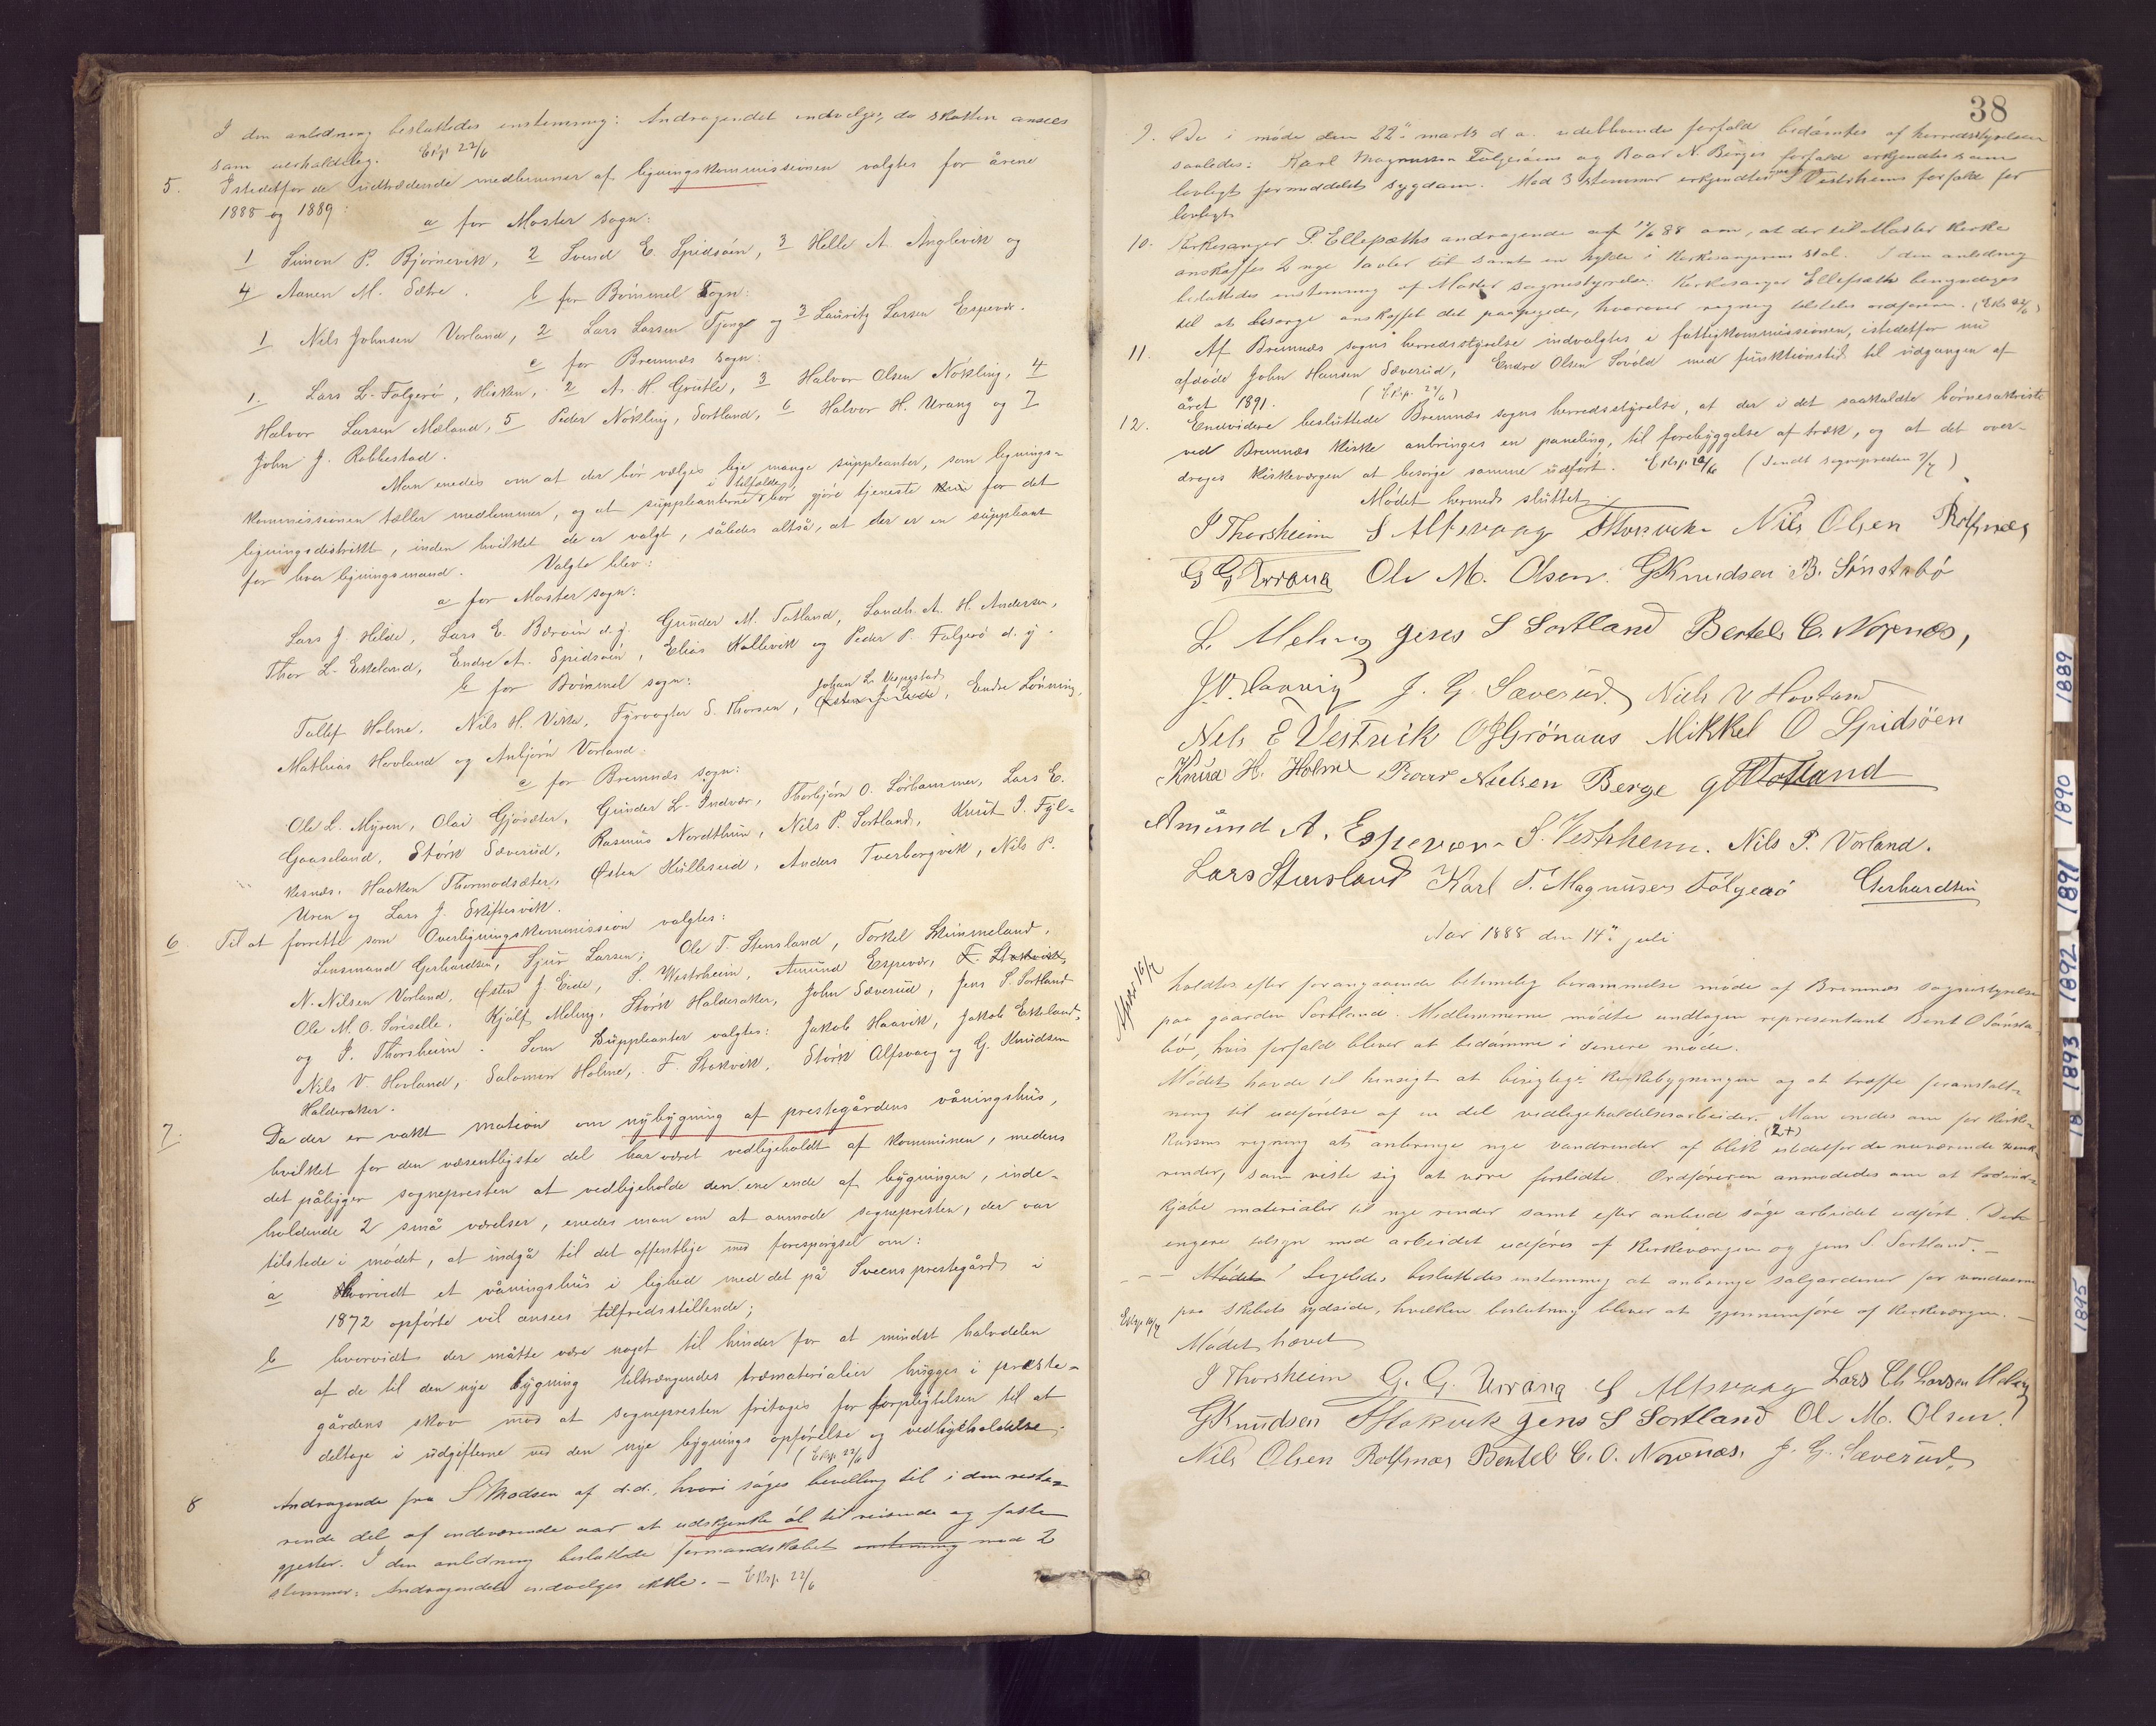 I den anledning besluttedes enstemmig: Andragendet indvilges, da skatten ansees
som uerholdelig. Exp 22/6
5. Istedetfor de udtrædende medlemmer af ligningskommissionen valgtes for årene
1888 og 1889:
a for Moster sogn:
1 Simon P. Bjørnevik, 2 Svend E. Spidsøen, 3 Helle A. Anglevik og
4 Aanen M. Sætre.
b for Bömmel Sogn:
1 Nils Johnsen Vorland, 2 Lars Larsen Tjong og 3 Lauritz Larsen Espevær.
c for Bremnæs sogn:
1. Lars L. Folgerø, Hisken, 2 A. H. Grutle, 3 Halvor Olsen Nökling, 4
Halvor Larsen Mæland, 5 Peder Nökling, Sortland, 6 Halvor H. Urang og 7
John J. Robbestad.
Man enedes om at der bör vælges lige mange suppleanter, som lignings-
kommissionen tæller medlemmer, og at suppleanterne i tilfælde bör gjöre tjeneste kun for det
ligningsdistrikt, inden hvilket de er valgt, således altså, at der er en suppleant
for hver ligningsmand. Valgte blev:
a for Moster sogn:
Lars J. Hilde, Lars E. Bærøin d.y. Gunder M. Totland, Landh. A. H. Andersen,
Thor L. Ekeland, Endre A. Spidsøen, Elias Kallevik og Peder P. Folgerö d. y.
b for Bömmel sogn:
Tollef Holme, Nils H. Vika, Fyrvogter S. Thorsen, Østen J. Eide, Johan L. Vespestad, Endre Lönning,
Mathias Hovland og Anbjörn Vorland.
c for Bremnæs sogn:
Ole L. Myren, Olai Gjøsæter, Gunder L. Indvær, Thorbjörn O. Sörhammer, Lars E.
Gaaseland, Störk Sæverud, Rasmus Nordthun, Nils P. Sortland, Knut J. Fyl-
kesnæs, Haakon Thormodsæter, Østen Kulleseid, Anders Tverborgvik, Nils P.
Uren og Lars J. Skiftesvik.
6. Til at forrette som Overligningskommission valgtes:
Lensmand Gerhardsen, Sjur Larsen, Ole T. Stensland, Torkel Skimmeland,
N. Nilsen Vorland, Østen J. Eide, S. Westrheim, Amund Espevær, F. Stokvik,
Ole M. O. Söreselle, Kjölf Meling, Störk Halderaker, John Sæverud, Jens S. Sortland
og J. Thorsheim. Som Suppleanter valgtes: Jakob Haavik, Jakob Ekeland,
Nils V. Hovland, Salomon Holme, F. Stokvik, Störk Alfsvaag og G. Knudsen
Halderaker.
7. Da der er vakt motion om nybygning af prestegårdens våningshus,
hvilket for den væsentligste del har været vedligeholdt af kommunen, medens
det påligger sognepresten at vedligeholde den ene ende af bygningen, inde-
holdende 2 små værelser, enedes man om at anmode sognepresten, der var
tilstede i mödet, at indgå til det offentlige med forespørgsel om:
a Hvorvidt et våningshus i lighed med det på Sveens prestegård i
1872 opförte vil ansees tilfredsstillende;
b hvorvidt der måtte være noget til hinder for at mindst halvdelen
af de til den nye bygning tiltrængendes træmaterialier hugges i præste-
gårdens skov mod at sognepresten fritages for forpligtelsen til at
deltage i udgifterne ved den nye bygnings opförelse og vedligeholdelse.
(Exp. 22/6
8 Andragende fra S. Madsen af d.d., hvori söges bevilling til i den reste-
rende del af indeværende aar at udskjænke öl til reisende og faste
gjester. I den anledning besluttede formandskabet enstemmig med 2
stemmer: Andragendet indvilges ikke. — Exp. 22/6
38
9. De i möde den 22de marts d. a. udeblevende forfald bedömtes af herredsstyrelsen
saaledes: Karl Magnussen Folgeröens og Roar N. Berges forfald erkjendtes som
lovligt formedelst sygdom. Med 3 stemmer erkjendtes S Vestrheims forfald for
lovligt.
10. Kirkesanger P. Ellepæths andragende af 14/6 88 om, at der til Moster kirke
anskaffes 2 nye tavler samt en hylde i kirkesangerens stol. I den anledning
besluttedes enstemmig af Moster sognestyrelse: Kirkesanger Ellepæth bemyndiges
til at besörge anskaffet det paapegede, hvorover regning tilstilles ordföreren. (Exp 22/6)
11. Af Bremnæs sogns herredsstyrelse indvalgtes i fattigkommissionen, istedetfor nu
afdöde John Hansen Sæverud, Endre Olsen Sovöld med funktionstid til udgangen af
året 1891. (Exp. 22/6)
12. Endvidere besluttede Bremnæs sogns herredsstyrelse, at der i det saakaldte börnesakristi
ved Bremnæs kirke anbringes en paneling, til forebyggelse af træk, og at det over-
drages kirkeværgen at besörge samme udfört. Exp. 22/6 (Sendt sognepresten 2/7)
Mödet hermed sluttet.
J Thorsheim S Alfsvaag F Stokvik Nils Olsen Rolfsnæs
G G Urrang Ole M. Olsen. G Knudsen B. Sönstabö
L. Meling Jens S Sortland Bertel C. Noren&aelig;s,
J. V. Haavig J. G. Sæverud. Nils V Hovland
Nels E Vestvik O J Grönaas Mikkel O Spidsöen
Knud H. Holme Roar Nielsen Berge G H Totland
Amund A. Espevær S. Vestrheim. Nils P. Vorland.
Lars Stensland Karl T. Magnusen Folgerö Gerhardsen
Aar 1888 den 14de juli
holdtes efter forangaaende betimelig berammelse möde af Bremnæs sognestyrelse
paa gaarden Sortland. Medlemmerne mödte undtagen representant Bent O Sönsta-
bö, hvis forfald bliver at bedömme i senere möde.
Mödet havde til hensigt at besigtige kirkebygningen og at træffe foranstalt-
ning til udförelse af en del vedligeholdelsesarbeider. Man enedes om for kirke-
kassens regning at anbringe nye vandrender (2+) af blik istedetfor de nuværende zink-
render, som viste sig at være forslidte. Ordföreren anmodedes om at lade ind-
kjöbe materialer til nye render samt efter anbud söge arbeidet udfört. Det
engere tilsyn med arbeidet udföres af kirkeværgen og Jens S. Sortland. —
Exp 16/7
— — Mödet Ligeledes besluttedes enstemmig at anbringe solgardiner for vinduerne
paa skibets sydside, hvilken beslutning bliver at gjennemföre af kirkeværgen. —
Exp 16/7
Mödet hævet
J Thorsheim G. G. Urrang S Alfsvaag Lars Ch Larsen Meling
G Knudsen F Stokvik Jens S Sortland Ole M. Olsen.
Nils Olsen Rolfsnæs Bentel C. O. Norenæs. J. G. Sæverud.
1889
1890
1891
1892
1893
18
1895